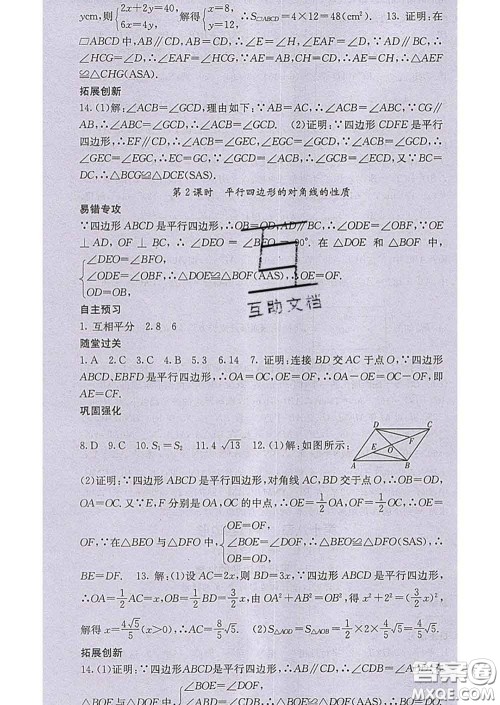 ycm,则{2x+2y=40, 6x=4y, 解得{x=8, y=12. ∴S□ABCD=4×12=48(cm²). 13. 证明:在
□ABCD中,AB∥CD,AB=CD,∴∠E=∠H,∠EAF=∠D,∵AD∥BC,∴
∠HCG=∠D,∴∠EAF=∠HCG,∵AE=AB,CH=CD,∴AE=CH,∴△AEF
≌△CHG(ASA).
拓展创新
14.(1)解:∠ACB=∠GCD,理由如下:∵AB=AC,∴∠ABC=∠ACB,∵CG∥
AB,∴∠ABC=∠GCD,∴∠ACB=∠GCD. (2)证明:∵四边形CDFE是平行
四边形,∴EF∥CD,∴∠GEC=∠ACB,∠EGC=∠GCD,∵∠ACB=∠GCD,∴
∠GEC=∠EGC,∴EC=GC,∵∠GCD=∠ACB,∴∠GCB=∠ECD,又∵BC=
DC,∴△BCG≌△DCE(SAS).
第2课时 平行四边形的对角线的性质
易错专攻
∵四边形ABCD是平行四边形,∴OB=OD,AD∥BC,∴∠ODE=∠OBF,∵OE
⊥AD,OF⊥BC,∴∠DEO=∠BFO=90°. 在△DOE和△BOF中,
{∠DEO=∠BFO,
∠ODE=∠OBF,∴△DOE≌△BOF(AAS),∴OE=OF.
OD=OB,
互助文档
自主预习
1. 互相平分 2.8 6
随堂过关
1.A 2.C 3.C 4.B 5.3 6.14 7. 证明:连接BD交AC于点O,∵四边形
ABCD、EBFD是平行四边形,∴OA=OC,OE=OF,∴OA-OE=OC-OF,即
AE=CF.
巩固强化
8.D 9.C 10.S₁=S₂ 11.4√13 12.(1)解:如图所示:
D C E F O A B
(2)证明:∵四边形ABCD是平行四边形,对角线AC、BD交于点O,∴OB=OD,
OA=OC. 又∵E、F分别是OA、OC的中点,∴OE=1/2OA,OF=1/2OC,∴OE=
OF,在△BEO与△DFO中,{OE=OF, ∠BOE=∠DOF, OB=OD, ∴△BEO≌△DFO(SAS),∴
BE=DF. 13. 解:(1)设AC=2x,则BD=3x,∵四边形ABCD是平行四边形,
∴OA=1/2AC=x,OB=1/2BD=3/2x,由OA²+AB²=OB²,得x²+2²=(3/2x)²,
解得x=4√5/5(x>0),∴AC=8/5√5. (2)S△AOD=S△AOB=1/2×2×4/5√5=4/5√5.
拓展创新
14.(1)证明:∵四边形ABCD是平行四边形,∴AB∥CD,∴∠CDB=∠A
∠BOE=∠DOF,